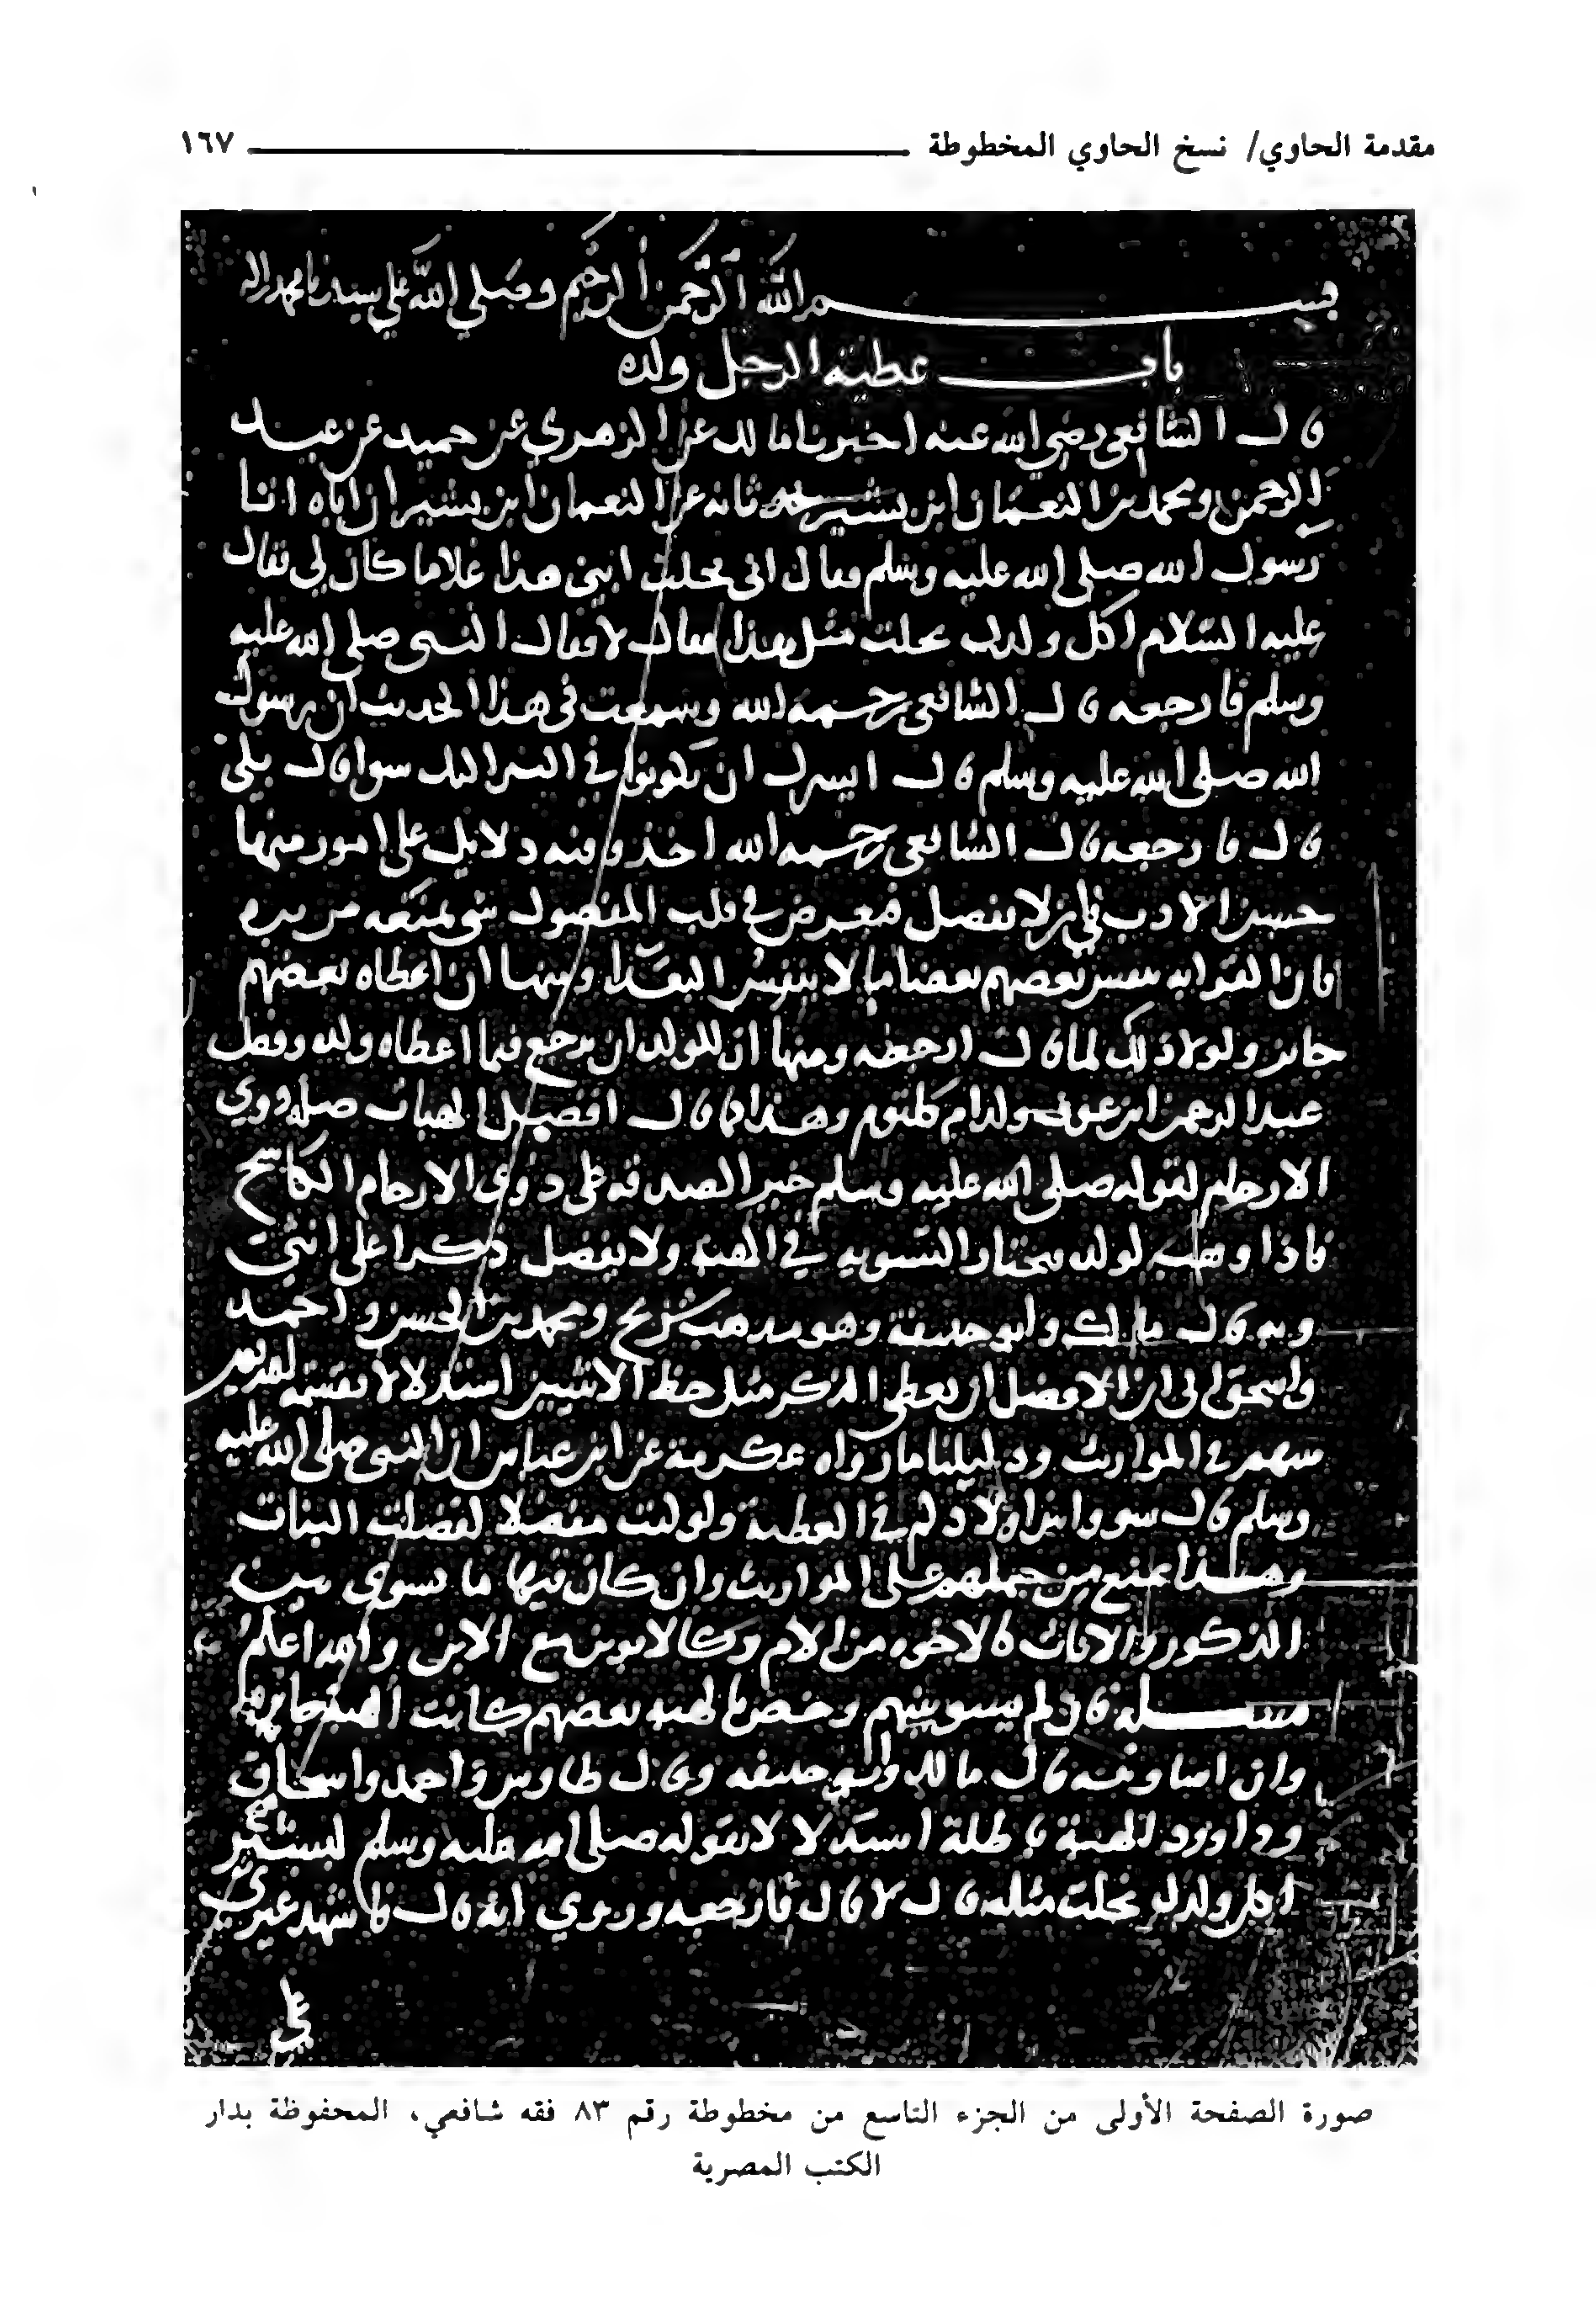 مقدمة الحاوي/ نسخ الحاوي المخطوطة ١٦٧
بسم الله الرحمن الرحيم وصلي الله علي سيدنا محمد واله
باب عطية الرجل ولده
قال الشافعي رضي الله عنه اخبرنا مالك عن الزهري عن حميد عن عبد
الرحمن ومحمد بن النعمان ابن بشير عن النعمان ابن بشير ان اباه اتا
رسول الله صلي الله عليه وسلم فقال اني نحلت ابني هذا غلاما كان لي فقال
عليه السلام اكل ولدك نحلت مثل هذا فقال لا فقال النبي صلي الله عليه
وسلم فارجعه قال الشافعي رحمه الله وسمعت في هذا الحديث ان رسول
الله صلي الله عليه وسلم قال ايسرك ان يكونوا في البر اليك سوا قال بلي
قال فارجعه قال الشافعي رحمه الله اخذ وفيه دلايل علي امور منها
حسن الادب في ان لا يفضل فيعرض في قلب المفضول شي يمنعه من بره
فان القرابه ينفس بعضهم بعضا ما لا ينفس البعدا ومنها ان اعطاه بعضهم
جايز ولولا ذلك لما قال ارجعه ومنها ان للوالد ان يرجع فيما اعطاه ولده وفضل
عبد الرحمن ابن عوف ولد ام كلثوم وهذا كما قال افضل الهبات صلة ذوي
الارحام لقوله صلي الله عليه وسلم خير الصدقه علي ذوي الارحام الكاشح
فاذا وهب لولده يختار التسويه في الهبه ولا يفضل ذكرا علي انثي
وبه قال مالك وابو حنيفة وهو مذهب شريح ومحمد بن الحسن واحمد
واسحق الي ان الافضل ان يعطي الذكر مثل حظ الانثيين استدلالا بقسمه الله
سهم في المواريث ودليلنا ما رواه عكرمة عن ابن عباس ان النبي صلي الله عليه
وسلم قال سووا بين اولادكم في العطية ولو كنت مفضلا لفضلت البنات
وهذا يمنع من حملهم علي المواريث وان كان فيها ما يسوي بين
الذكور والاناث كالاخوه من الام وكالابوين مع الابن والله اعلم
مسله فان لم يسو بينهم وخص بالهبه بعضهم كانت الهبة جايزه
وان اسا وبه قال مالك وابو حنيفه وقال طاوس واحمد واسحاق
وداوود الهبة باطلة استدلالا بقوله صلي الله عليه وسلم لبشير
اكل ولدك نحلت مثله قال لا قال فارجعه وروي انه قال فاشهد غيري
علي
صورة الصفحة الأولى من الجزء التاسع من مخطوطة رقم ٨٣ فقه شافعي، المحفوظة بدار
الكتب المصرية